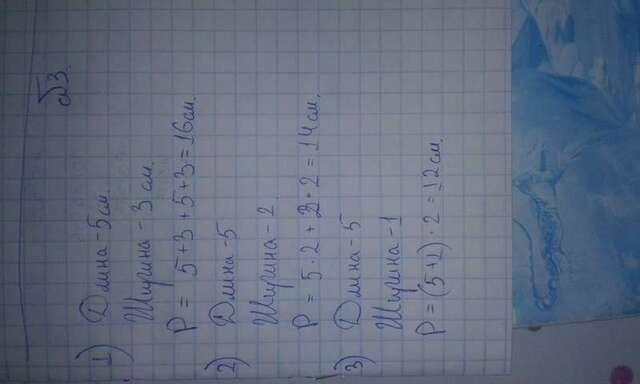 №3.
1) Длина - 5 см.
Ширина - 3 см.
P = 5+3+5+3=16 см.
2) Длина - 5
Ширина - 2
P = 5·2+2·2=14 см.
3) Длина - 5
Ширина - 1
P=(5+1)·2=12 см.